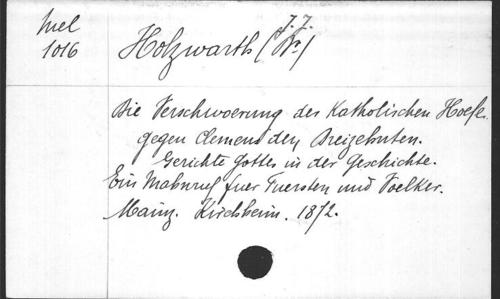 Mel
1016
J. J.
Holzwarth (Dr.)
Die Verschwoerung der Katholischen Hoefe
gegen Clemens den Dreizehnten.
Gerichte Gottes in der Geschichte.
Ein Mahnruf fuer Fuersten und Voelker.
Mainz. Kirchheim. 1872.